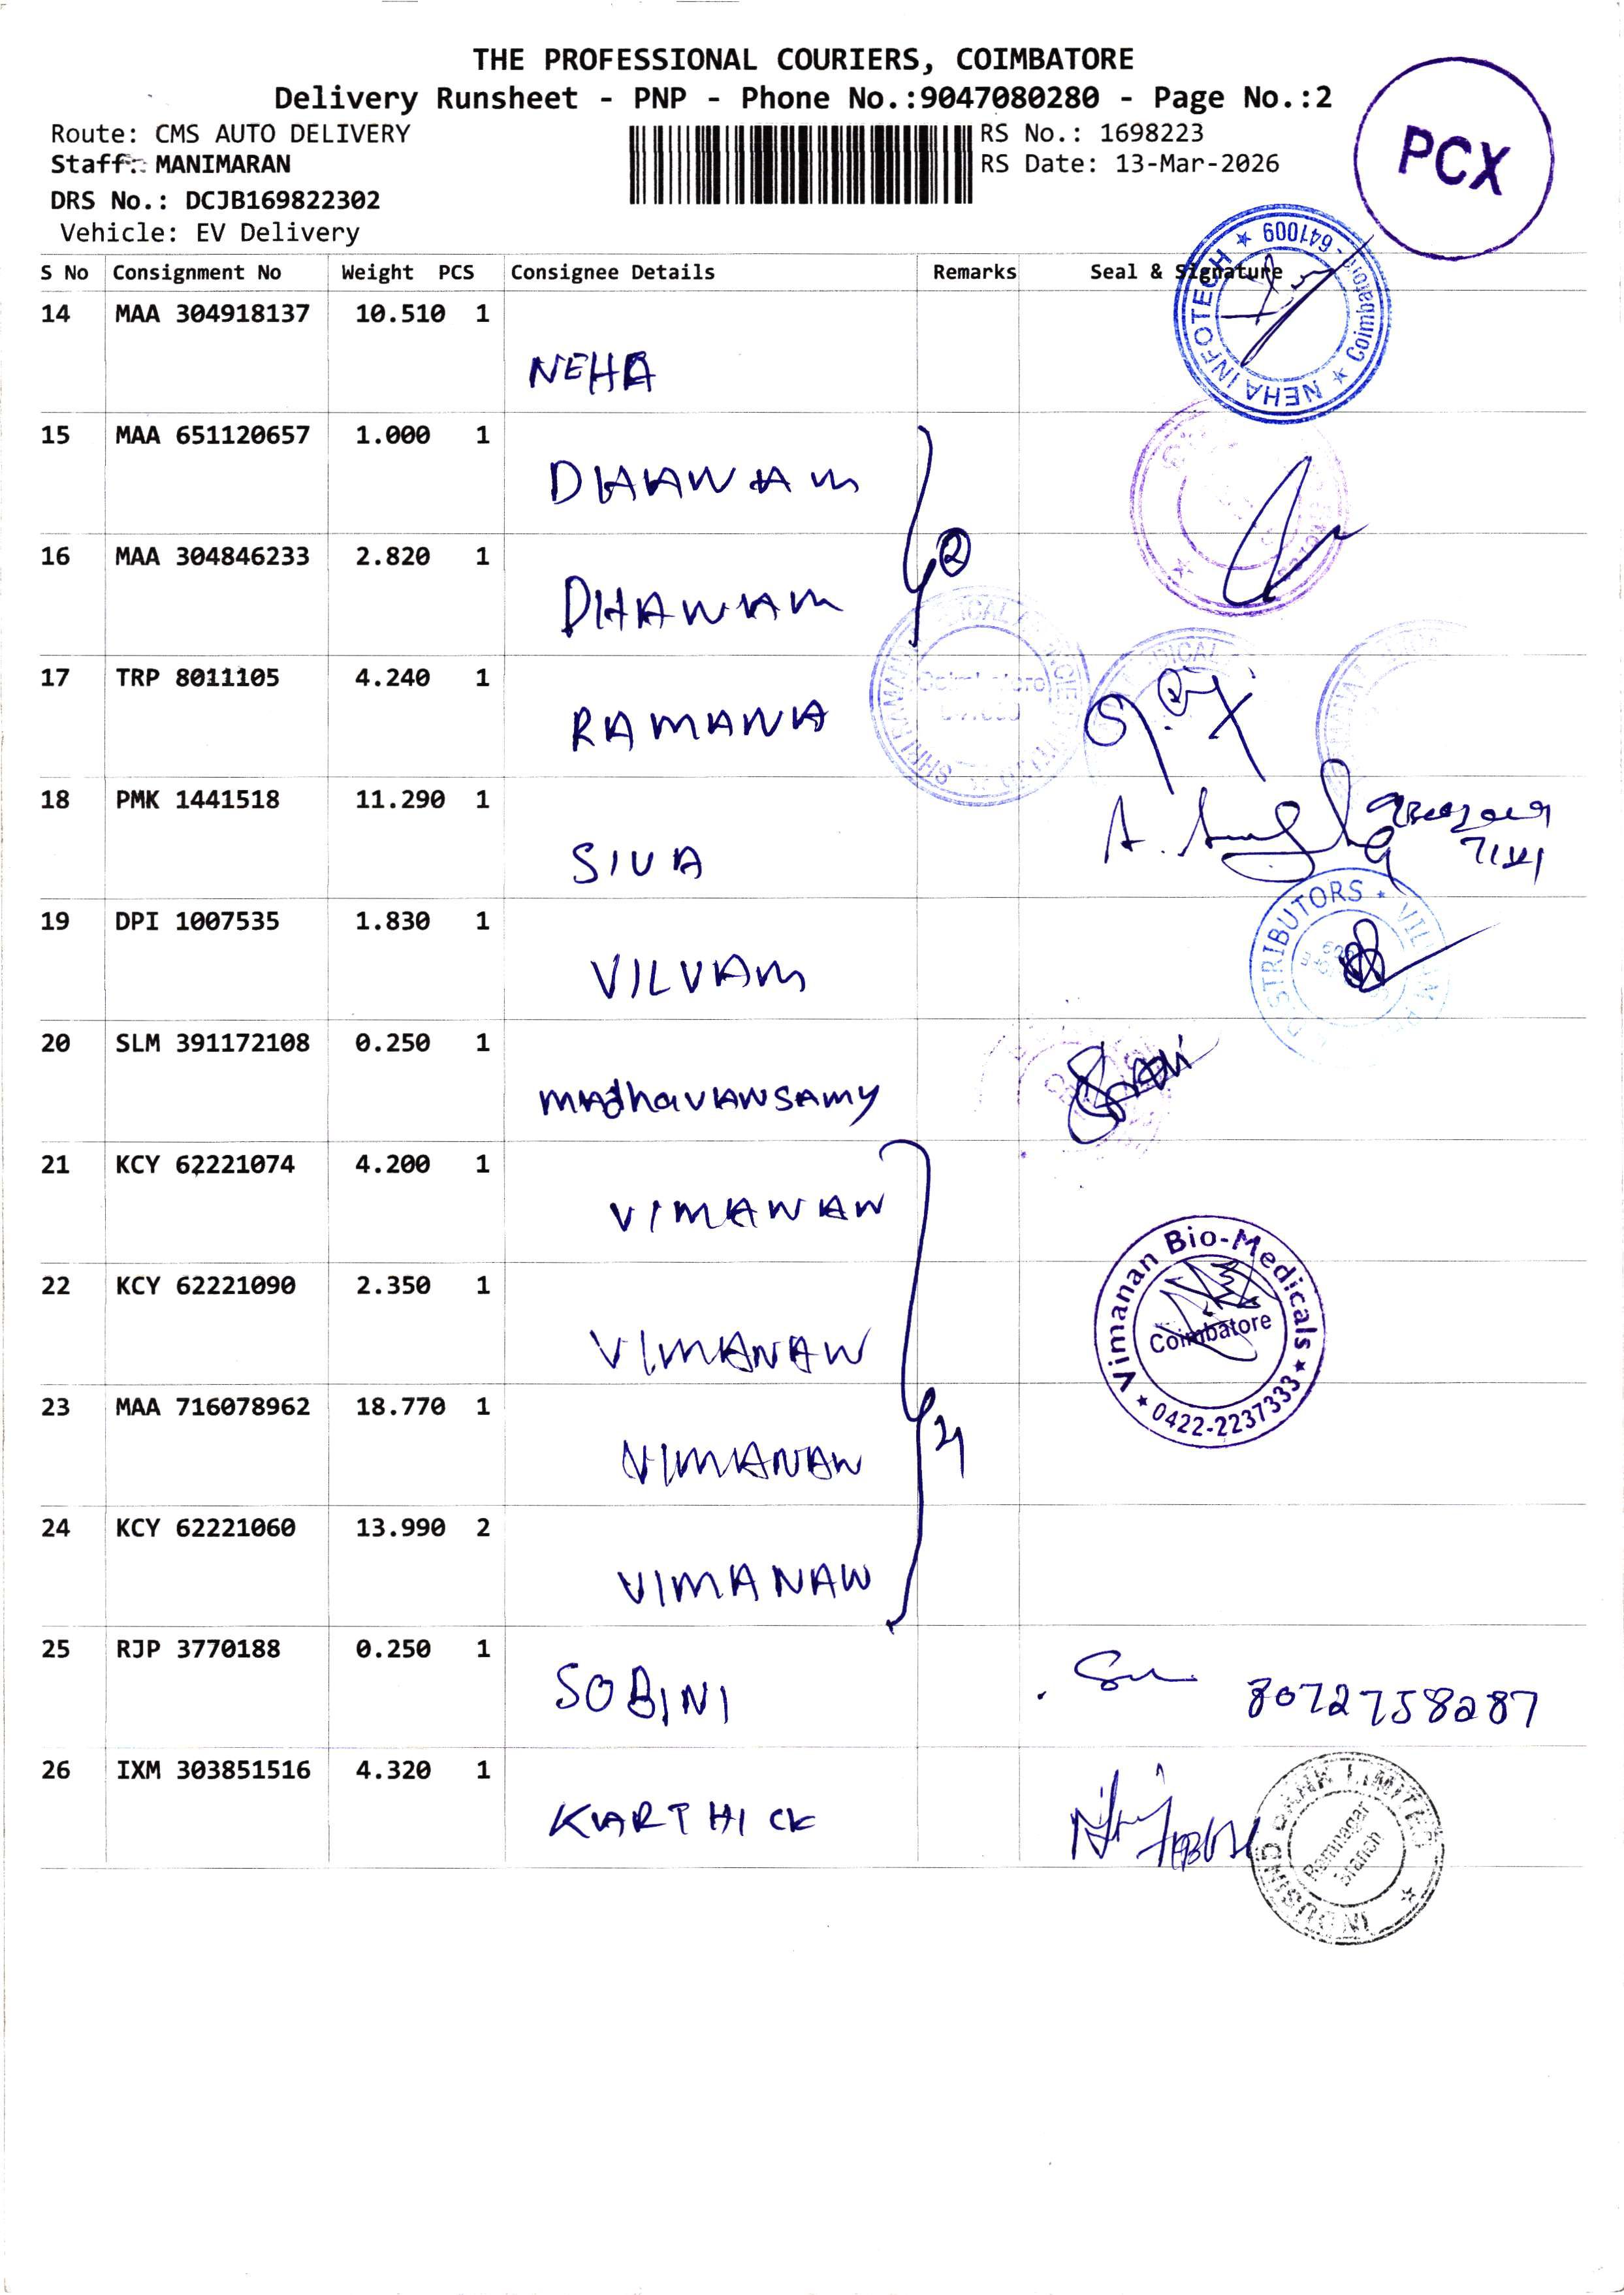 THE PROFESSIONAL COURIERS, COIMBATORE
Delivery Runsheet - PNP - Phone No.:9047080280 - Page No.:2
PCX
Route: CMS AUTO DELIVERY
RS No.: 1698223
Staff: MANIMARAN
RS Date: 13-Mar-2026
DRS No.: DCJB169822302
Vehicle: EV Delivery
S No Consignment No Weight PCS Consignee Details Remarks Seal & Signature
14 MAA 304918137 10.510 1
NEHA
NEHA INFOTECH ★ Coimbatore - 641009 ★
15 MAA 651120657 1.000 1
DHAWAM
16 MAA 304846233 2.820 1
2
DHAWAM
17 TRP 8011105 4.240 1
RAMANA
18 PMK 1441518 11.290 1
SIVA
19 DPI 1007535 1.830 1
VILVAM
20 SLM 391172108 0.250 1
MADhavanSAMY
21 KCY 62221074 4.200 1
VIMANAN
22 KCY 62221090 2.350 1
VIMANAN
Vimanan Bio-Medicals ★ 0422-2237333 ★
Coimbatore
23 MAA 716078962 18.770 1
VIMANAN
24 KCY 62221060 13.990 2
VIMANAN
25 RJP 3770188 0.250 1
SOBINI
8072758287
26 IXM 303851516 4.320 1
KARTHICK
INDUSIND BANK LIMITED ★
Ramnagar
branch